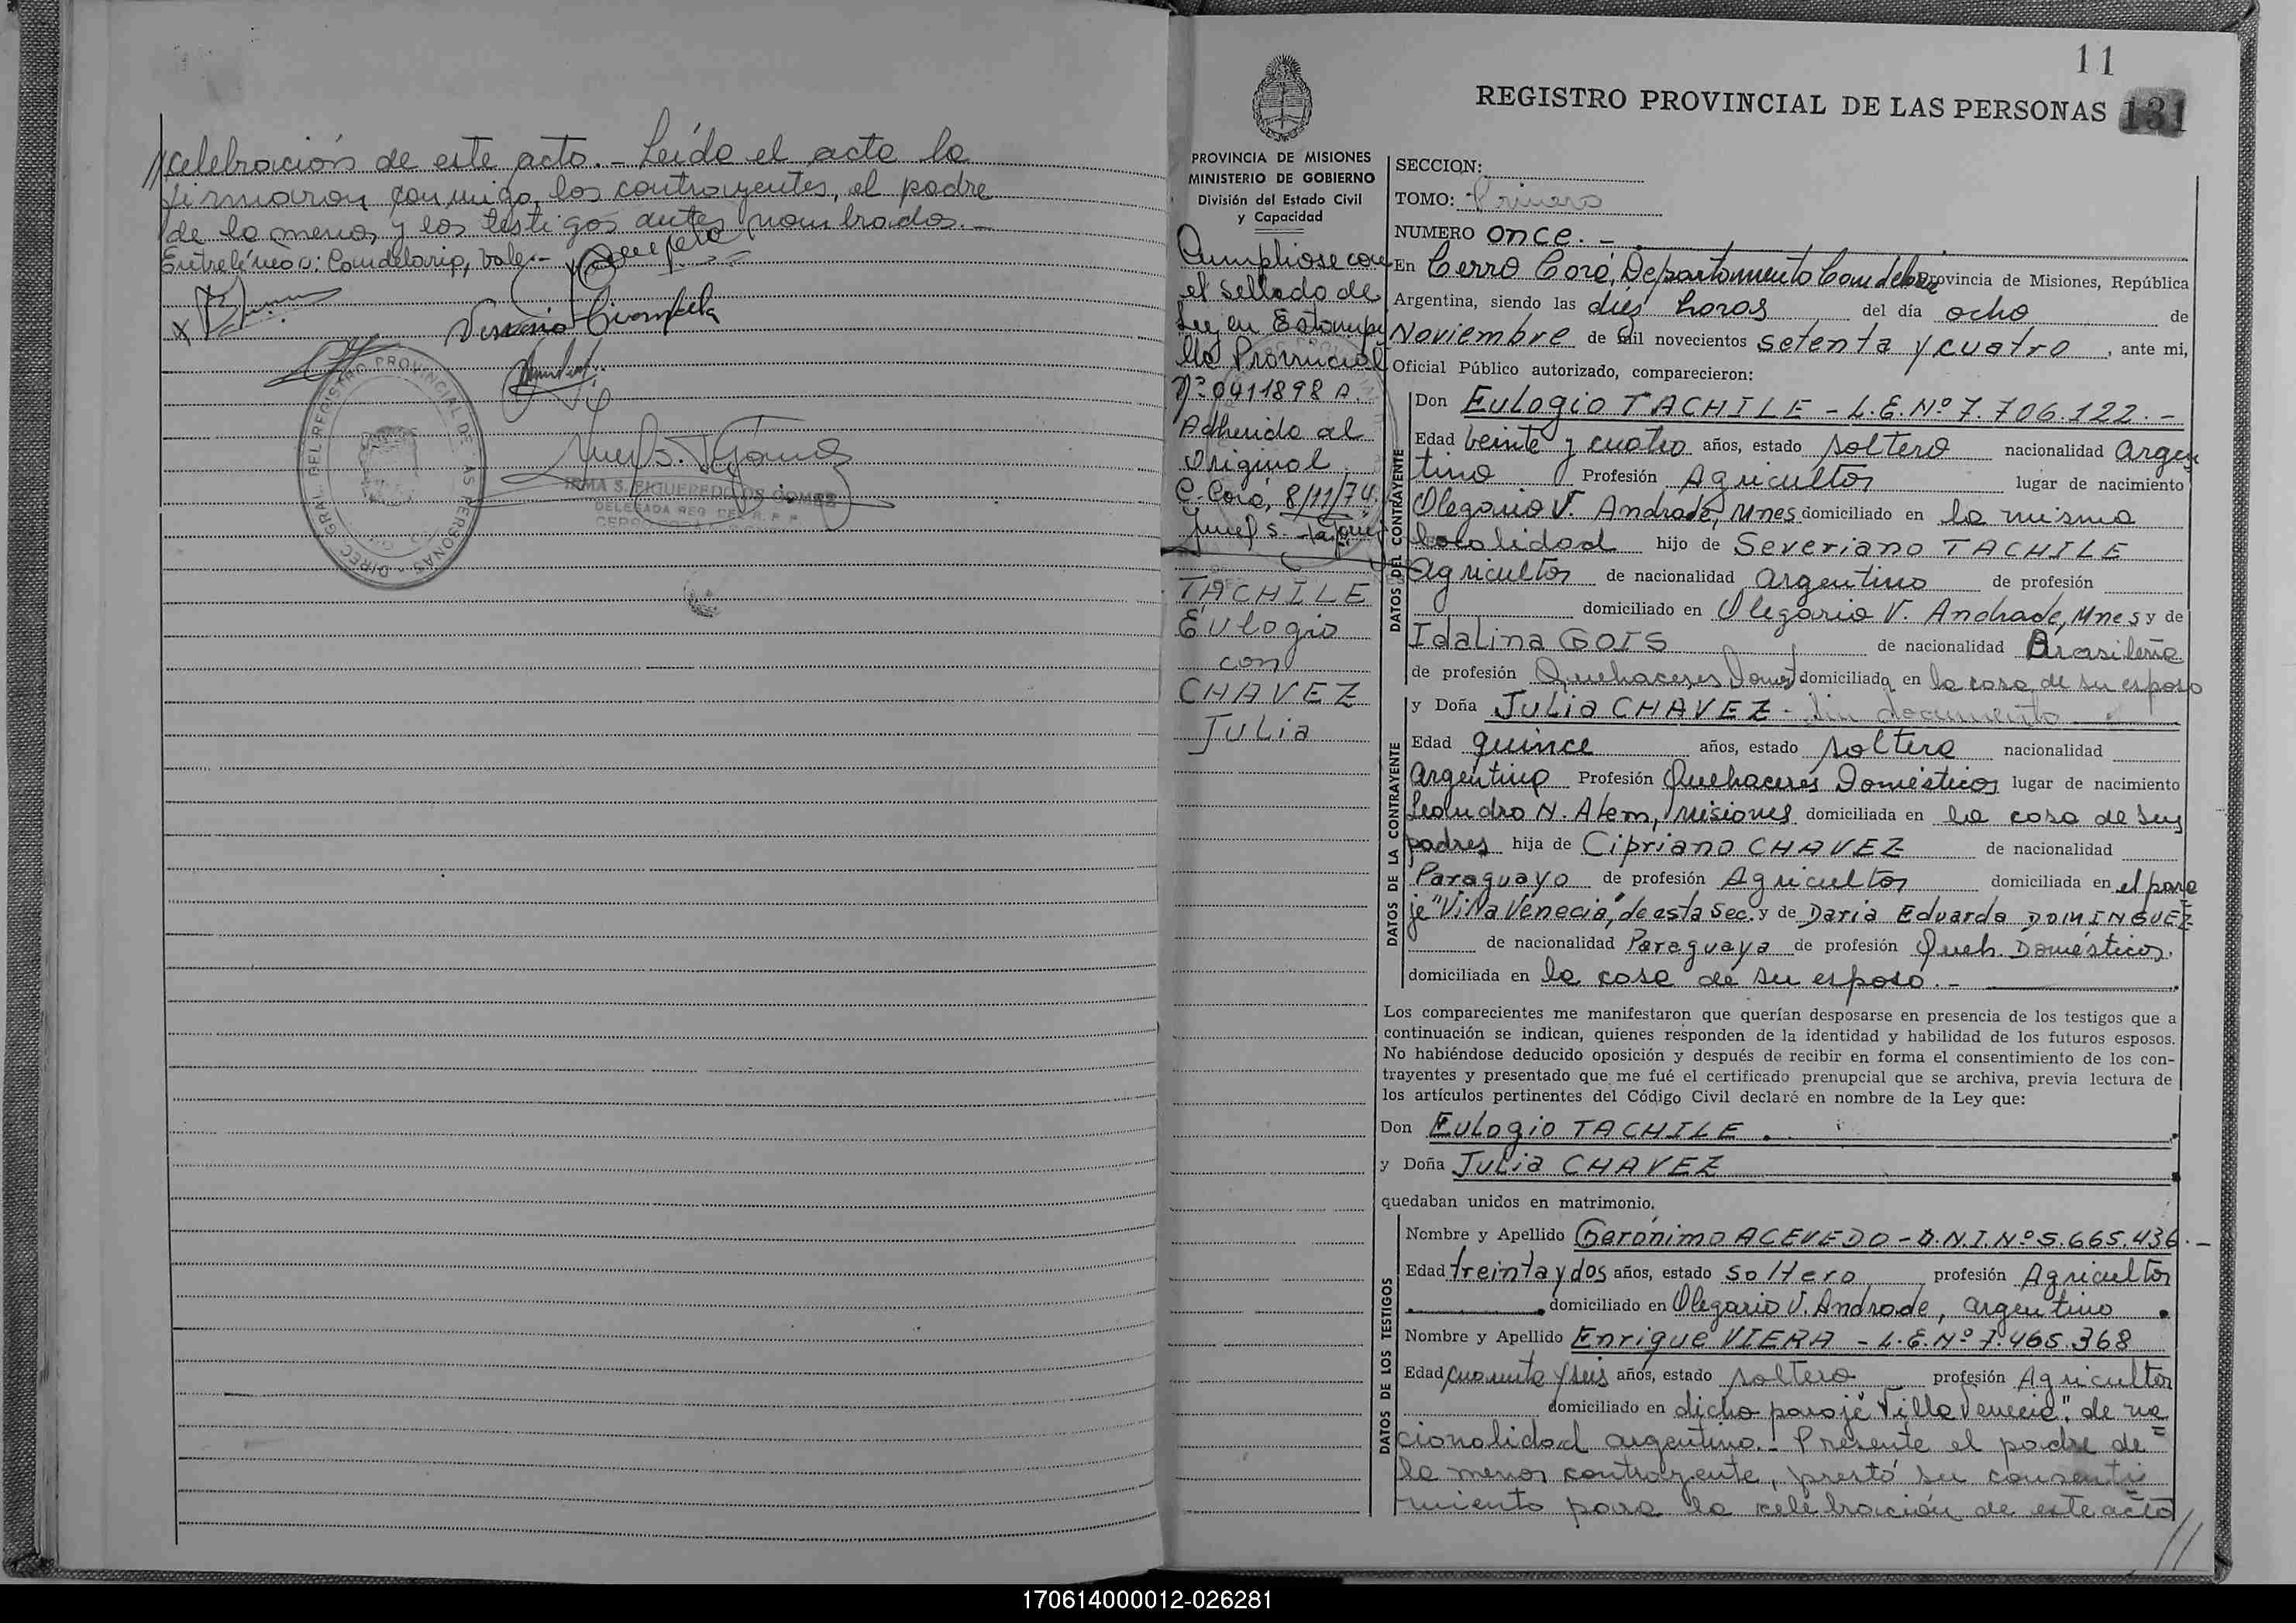 //celebración de este acto.- Leído el acto lo
firmaron conmigo, los contrayentes, el padre
de la menor y los testigos antes nombrados.-
Entrelíneas: Candelaria, Vale.-
X
DIREC. GRAL. DEL REGISTRO PROVINCIAL DE LAS PERSONAS
IRMA S. FIGUEREDO DE GOMEZ
DELEGADA REG. DEL R. P. P.
CERRO CORA
11
REGISTRO PROVINCIAL DE LAS PERSONAS 131
PROVINCIA DE MISIONES
MINISTERIO DE GOBIERNO
División del Estado Civil
y Capacidad
Cumpliose con
el Sellado de
Ley en Estampi
lla Provincial
Nº 0411898 A.
Adherido al
Original.
C. Corá, 8/11/74.
TACHILE
Eulogio
con
CHAVEZ
Julia
SECCION:
TOMO: Primero
NUMERO once.-
En Cerro Corá, Departamento Candelaria Provincia de Misiones, República
Argentina, siendo las diés horas del día ocho de
Noviembre de mil novecientos setenta y cuatro, ante mi,
Oficial Público autorizado, comparecieron:
DATOS DEL CONTRAYENTE
Don Eulogio TACHILE - L.E. Nº 7.706.122.-
Edad veinte y cuatro años, estado soltero nacionalidad Argen
tino Profesión Agricultor lugar de nacimiento
Olegario V. Andrade, Mnes domiciliado en la misma
localidad hijo de Severiano TACHILE
Agricultor de nacionalidad argentino de profesión
domiciliado en Olegario V. Andrade, Mnes y de
Idalina GOIS de nacionalidad Brasileña
de profesión Quehaceres Domést domiciliada en la casa de su esposo
DATOS DE LA CONTRAYENTE
y Doña Julia CHAVEZ - Sin documento
Edad quince años, estado soltera nacionalidad
Argentina Profesión Quehaceres Domésticos lugar de nacimiento
Leandro N. Alem, Misiones domiciliada en la casa de sus
padres hija de Cipriano CHAVEZ de nacionalidad
Paraguayo de profesión Agricultor domiciliada en el para
je "Villa Venecia", de esta Sec. y de Daria Eduarda DOMINGUEZ
de nacionalidad Paraguaya de profesión Queh. Domésticos.
domiciliada en la casa de su esposo.-
Los comparecientes me manifestaron que querían desposarse en presencia de los testigos que a
continuación se indican, quienes responden de la identidad y habilidad de los futuros esposos.
No habiéndose deducido oposición y después de recibir en forma el consentimiento de los con-
trayentes y presentado que me fué el certificado prenupcial que se archiva, previa lectura de
los artículos pertinentes del Código Civil declaré en nombre de la Ley que:
Don Eulogio TACHILE.
y Doña Julia CHAVEZ
quedaban unidos en matrimonio.
DATOS DE LOS TESTIGOS
Nombre y Apellido Gerónimo ACEVEDO - D.N.I. Nº 5.665.436.-
Edad treinta y dos años, estado soltero profesión Agricultor
domiciliado en Olegario V. Andrade, argentino.
Nombre y Apellido Enrique VIERA - L.E. Nº 7.465.368
Edad cuarenta y seis años, estado soltero profesión Agricultor
domiciliado en dicho paraje "Villa Venecia", de na
cionalidad argentino.- Presente el padre de
la menor contrayente, prestó su consenti
miento para la celebración de este acto
//
170614000012-026281